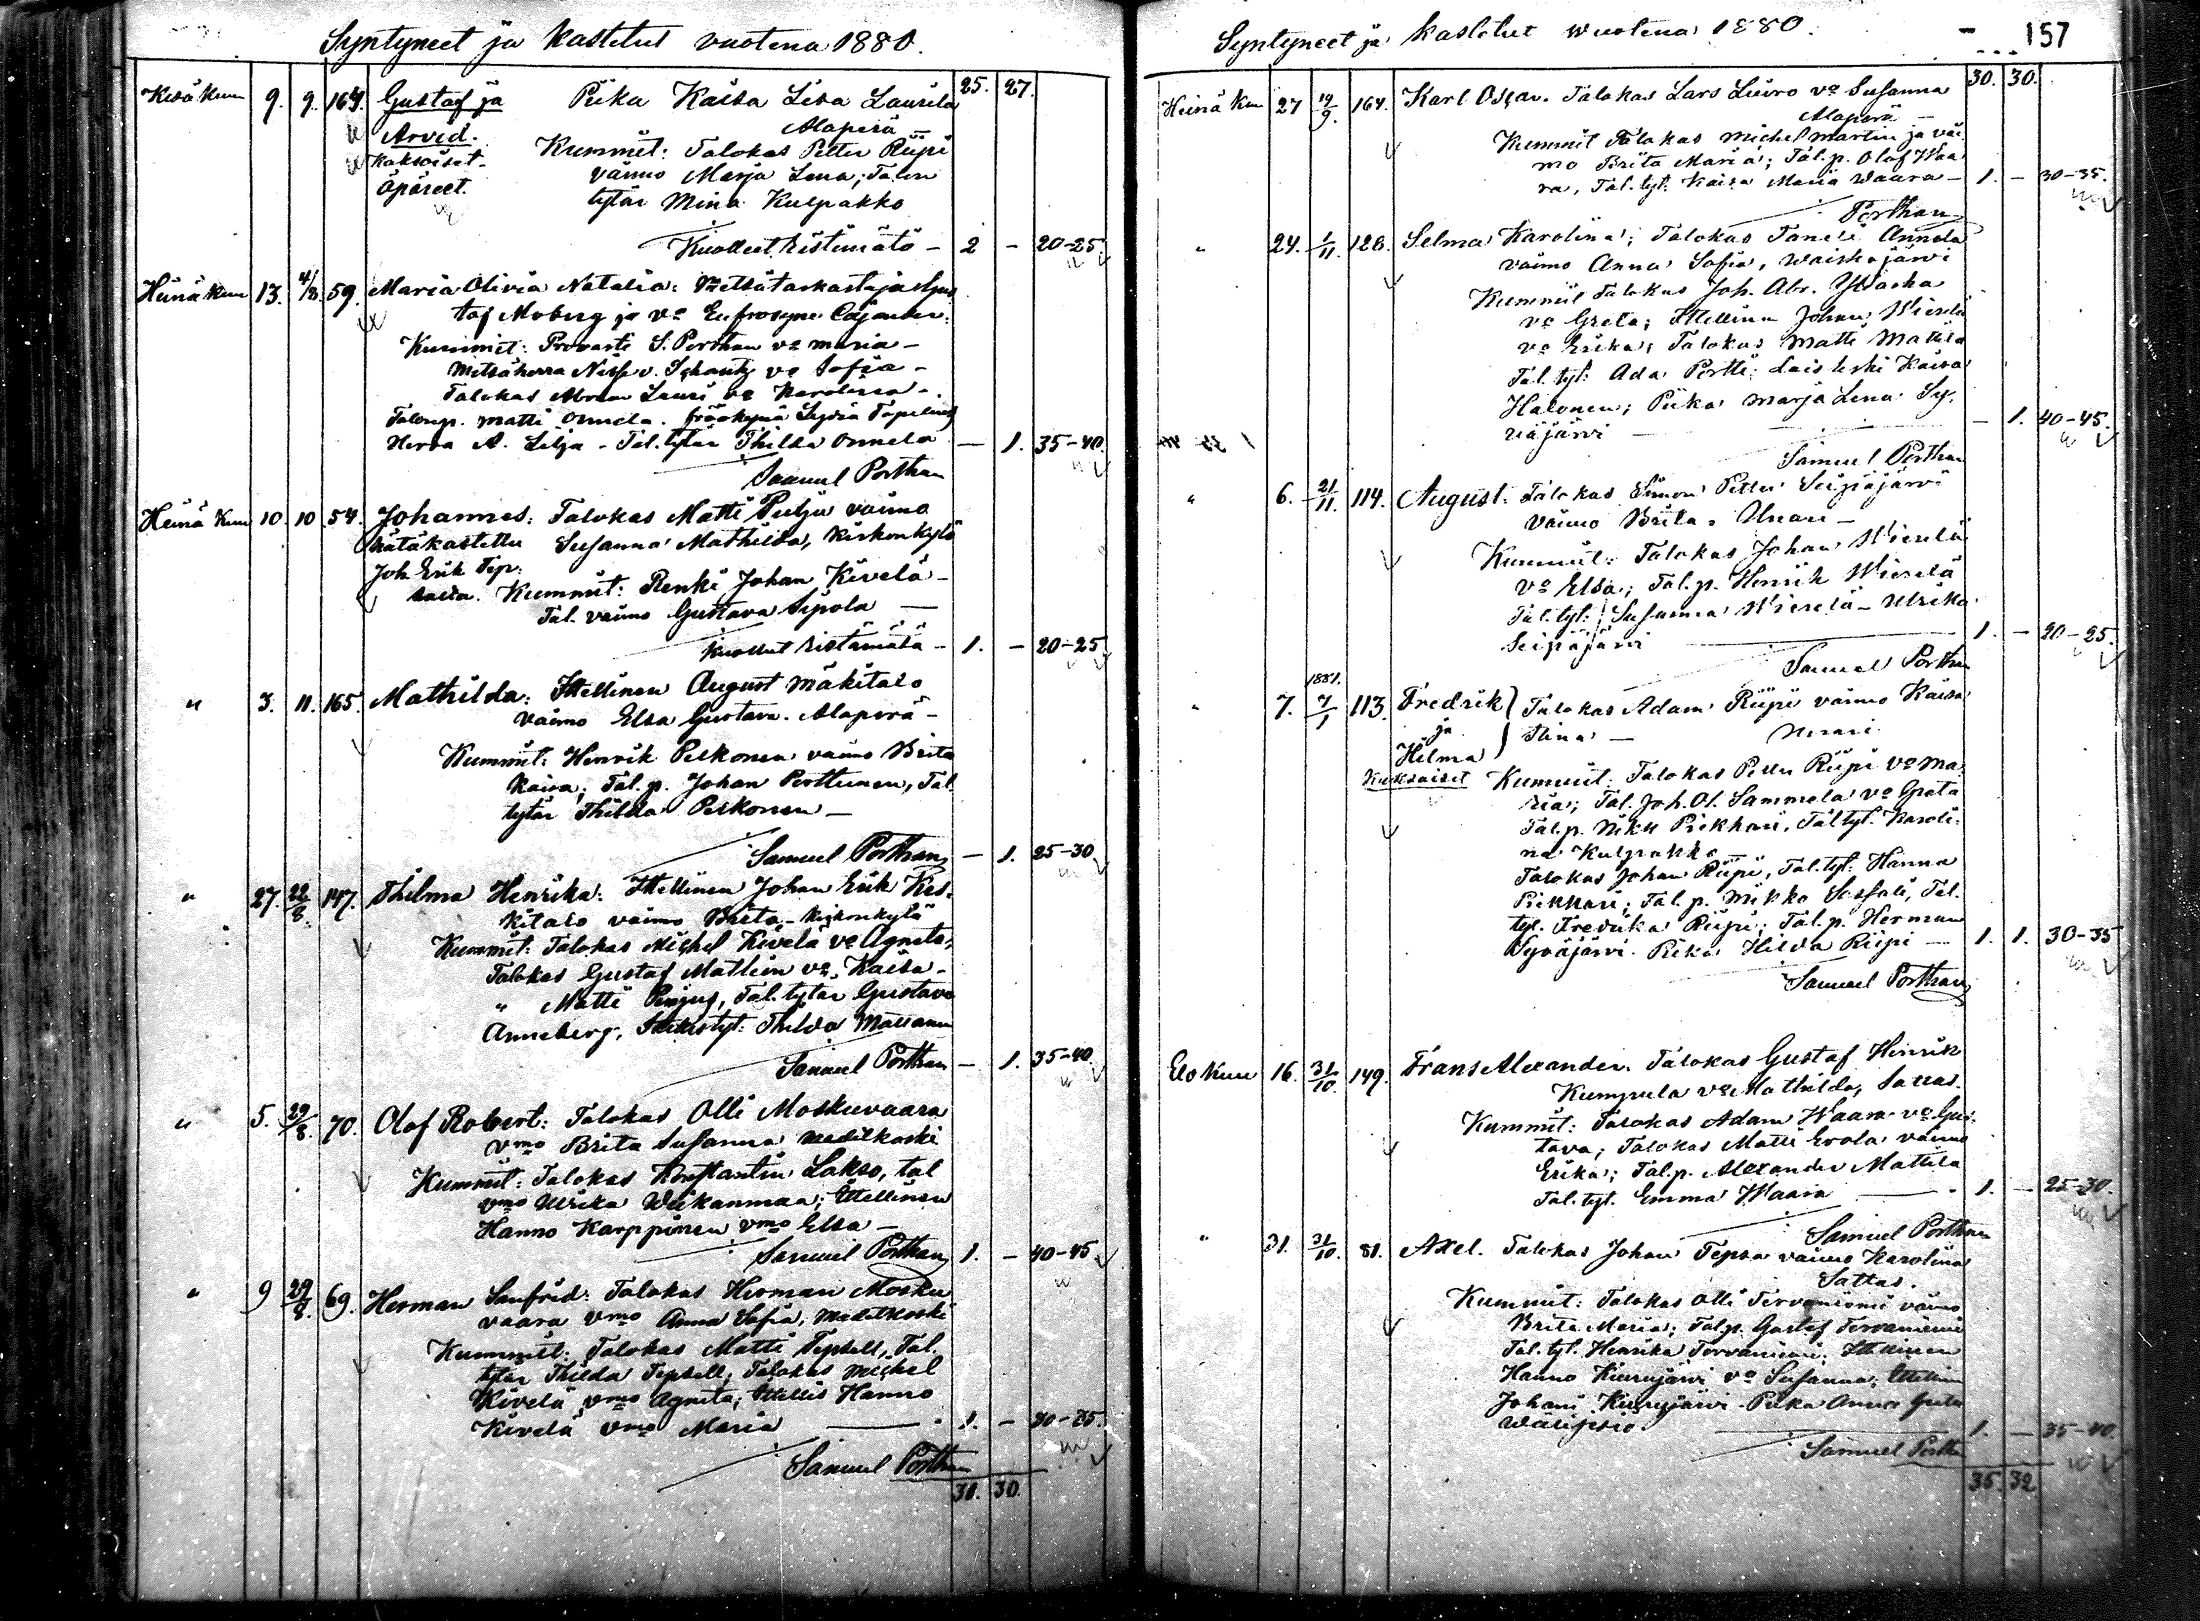 Syntyneet ja kastetut vuotena 1880.
25. 27.
Kesä Kuu 9. 9. 164. Gustaf ja Piika Kaisa Lisa Laurila
Arvid. Alaperä —
Kaksoiset Kummit: Talokas Petter Riipi
äpäreet. vaimo Marja Lena; Talon
tytär Mina Kulpakko
Kuolleet ristimätö — 2 — 20-25.
Heinä Kuu 13. 4/8. 59. Maria Olivia Natalia: Metsätarkastaja Gus
taf Moberg ja va Eufrosyne Cajander.
Kummit: Provasti S. Porthan va Maria —
Metsäherra Nisse v. Schantz va Sofia —
Talokas Abram Lauri va Karolina —
Talonp. Matti Onnela. fröökynä Lydia Topelius
Herra A. Lilja - Tal. tytär Thilda Onnela — 1. 35-40.
Samuel Porthan
Heinä Kuu 10 10 54. Johannes: Talokas Matti Pulju vaimo
hätäkastettu Susanna Mathilda, Kirkonkylä
Joh. Erik Tep-
salta. Kummit: Renki Johan Kivelä —
Tal. vaimo Gustava Sipola —
Kuollut ristämätä — 1. — 20-25
" 3. 11. 165. Mathilda: Itellinen August Mäkitalo
vaimo Elsa Gustava. Alaperä —
Kummit: Henrik Pelkonen vaimo Brita
Kaisa; Tal. p. Johan Porttunen, Tal.
tytär Thilda Pelkonen —
Samuel Porthan — 1. 25-30
" 27. 22/8. 147. Thilma Henrika: Itellinen Johan Erik Kes-
kitalo vaimo Brita — Kirkonkylä
Kummit: Talokas Michel Kivelä va Agneta,
Talokas Gustaf Mathlin va Kaisa —
" Matti Pinjus, Tal. tytär Gustava
Anneberg, tyt. Thilda
Samuel Porthan — 1. 35-40
" 5. 29/8. 70. Olof Robert: Talokas Olli Moskuvaara
vmo Brita Susanna Madetkoski
Kummit: Talokas Konstantin Lakso, tal
vmo Ulrika Wiikanmaa; Itellinen
Hanno Karppinen vmo Elsa —
Samuel Porthan 1. — 40-45
" 9 29/8. 69. Herman Sanfrid: Talokas Herman Mosku
vaara vmo Anna Sofia, Madetkoski
Kummit: Talokas Matti Tepsell, Tal.
tytär Thilda Tepsell; Talokas Michel
Kivelä vmo Agneta; Itellis Hanno
Kivelä vmo Maria — 1. — 20-25.
Samuel Porthan
31. 30.
Syntyneet ja kastetut wuotena 1880. 157
30. 30.
Heinä Kuu 27 19/9. 164. Karl Oscar. Talokas Lars Luiro va Susanna
Alaperä —
Kummit Talokas Michel Martin ja vai
mo Brita Maria; Tal. p. Olof Waa
ra, Tal. tyt. Kaisa Maria Waara — 1. — 30-35.
Porthan
" 24. 1/11. 128. Selma Karolina; Talokas Taneli Annola
vaimo Anna Sofia, Waiskojärvi
Kummit Talokas Joh. Abr. Yliaska
va Greta; Itellinen Johan Wierelä
va Erika; Talokas Matti Mattila
Tal. tyt: Ada Portti; Laisleski Kaisa
Halonen; Piika Marja Lena Sy-
väjärvi — 1. 40-45.
Samuel Porthan
" 6. 21/11. 114. August. Talokas Simon Petter Seipäjärvi
vaimo Brita. Unari —
Kummit: Talokas Johan Wierelä
va Elsa; Tal. p. Henrik Wierelä
Tal. tyt. Susanna Wierelä — Ulrika
Seipäjärvi 1. — 20-25.
Samuel Porthan
1881.
" 7. 7/1 113. Fredrik Talokas Adam Riipi vaimo Kaisa
ja Stina — Unari.
Hilma
Kaksoiset Kummit: Talokas Petter Riipi va Ma-
ria; Tal. Joh. Ol. Sammela va Greta
Tal. p. Niku Piekkari, Tal. tyt. Karoli-
na Kulpakko —
Talokas Johan Riipi, Tal. tyt. Hanna
Piekkari; Tal. p. Mikko Tal.
tyt. Fredrika Riipi; Tal. p. Herman
Syväjärvi. Piika Hilda Riipi — 1. 1. 30-35
Samuel Porthan
Elo Kuu 16. 31/10. 149. Frans Alexander. Talokas Gustaf Henrik
Kumpula va Mathilda, Sattas.
Kummit: Talokas Adam Waara va Gus-
tava; Talokas Matti Erola vaimo
Erika; Tal. p. Alexander Mattila
Tal. tyt. Emma Waara — 1. — 25-30.
Samuel Porthan
" 31. 31/10. 81. Axel. Talokas Johan Tepsa vaimo Karolina
Sattas.
Kummit: Talokas Olli Tervaniemi vaimo
Brita Maria; Tal. p. Gustaf Tervaniemi
Tal. tyt. Henrika Tervaniemi; Itellinen
Hanno Kiurujärvi va Susanna; Itellinen
Johani Kiurujärvi Piika Anna Greta
1. — 35-40.
Samuel Porthan
35 32